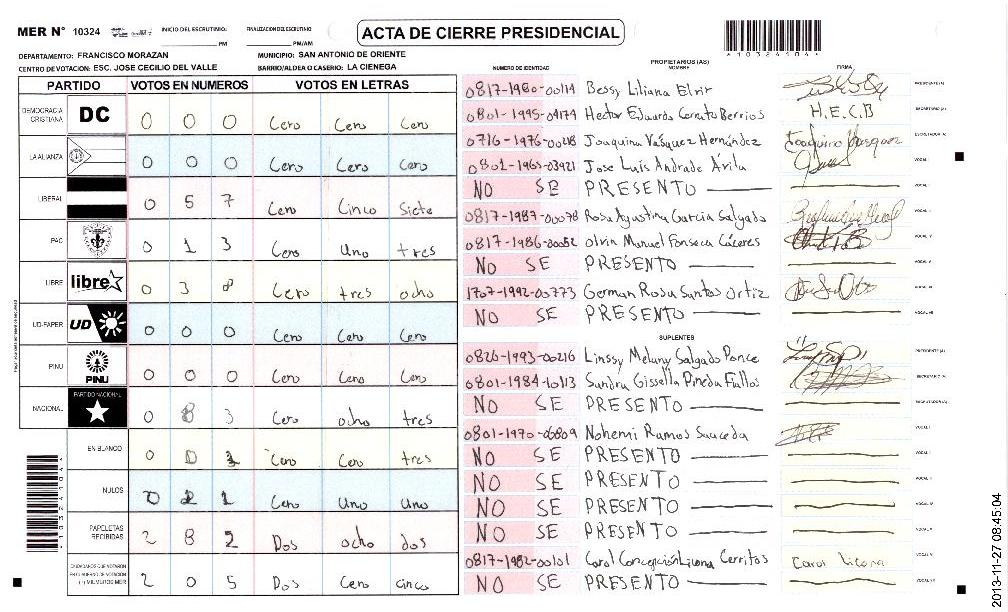 MER N° 10324 INICIO DEL ESCRUTINIO: PM FINALIZACION DEL ESCRUTINIO PM/AM
ACTA DE CIERRE PRESIDENCIAL
*10324104*
DEPARTAMENTO: FRANCISCO MORAZAN MUNICIPIO: SAN ANTONIO DE ORIENTE
CENTRO DE VOTACION: ESC. JOSE CECILIO DEL VALLE BARRIO/ALDEA O CASERIO: LA CIENEGA
PARTIDO VOTOS EN NUMEROS VOTOS EN LETRAS
DEMOCRACIA CRISTIANA DC 0 0 0 Cero Cero Cero
LA ALIANZA 0 0 0 Cero Cero Cero
LIBERAL 0 5 7 Cero Cinco Siete
PAC 0 1 3 Cero Uno tres
LIBRE libre 0 3 8 Cero tres ocho
UD-FAPER UD 0 0 0 Cero Cero Cero
PINU PINU 0 0 0 Cero Cero Cero
NACIONAL PARTIDO NACIONAL 0 8 3 Cero ocho tres
EN BLANCO 0 0 3 Cero Cero tres
NULOS 0 1 1 Cero Uno Uno
PAPELETAS RECIBIDAS 2 8 2 Dos ocho dos
CIUDADANOS QUE VOTARON EN CUADERNO DE VOTACION (+) MIEMBROS MER 2 0 5 Dos Cero cinco
*10324104*
PROPIETARIOS (AS)
NUMERO DE IDENTIDAD NOMBRE FIRMA
0817-1980-00114 Bessy Liliana Elvir PRESIDENTE (A)
0801-1995-04179 Hector Eduardo Cerrato Berrios H.E.C.B SECRETARIO (A)
0716-1976-00218 Joaquina Vásquez Hernández Joaquina Vasquez ESCRUTADOR (A)
0801-1965-03921 Jose Luis Andrade Ávila VOCAL I
NO SE PRESENTO
0817-1987-00078 Rosa Agustina Garcia Salgado
0817-1986-00052 Olvin Manuel Fonseca Cáceres
NO SE PRESENTO
1707-1992-00773 German Rosa Santos Ortiz
NO SE PRESENTO
SUPLENTES
0826-1993-00216 Linssy Melany Salgado Ponce PRESIDENTE (A)
0801-1984-10113 Sandra Gissella Pineda Fiallos SECRETARIO (A)
NO SE PRESENTO ESCRUTADOR (A)
0801-1970-06809 Nohemi Ramos Sauceda
NO SE PRESENTO
NO SE PRESENTO
NO SE PRESENTO
NO SE PRESENTO
0817-1982-00101 Carol Concepción Licona Cerritos Carol Licona
NO SE PRESENTO
2013-11-27 08:45:04